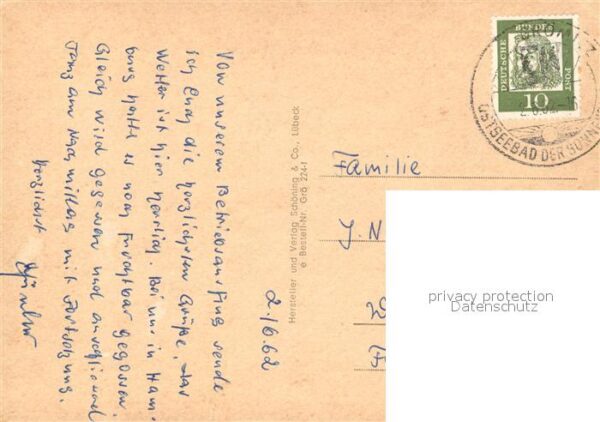 2.16.62
Von unserem Betriebsausflug sende
ich Euch die herzlichsten Grüße, das
Wetter ist hier herrlich. Bei uns in Ham-
burg hatte es noch furchtbar gegossen.
Gleich wird gegessen und anschließend
Tanz am Nachmittag mit Fortsetzung.
Herzlichst
Hersteller und Verlag Schöning & Co., Lübeck
Bestell-Nr. Grö 224-1
Familie
J. N
DEUTSCHE BUNDES POST
10
OSTSEEBAD DER SONNEN
privacy protection
Datenschutz